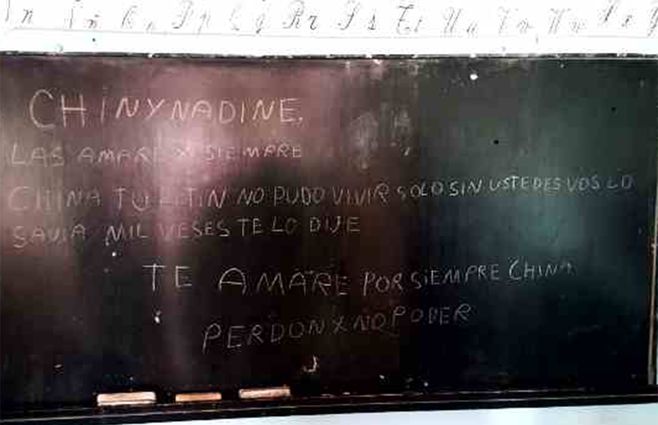 n Ññ Oo Pp Qq Rr Ss Tt Uu Vv Ww Xx y
CHINYNADINE,
LAS AMARE X SIEMPRE
CHINA TU TIN NO PUDO VIVIR SOLO SIN USTEDES VOS LO
SAVIA MIL VESES TE LO DIJE
TE AMARE POR SIEMPRE CHINA
PERDON X NO PODER